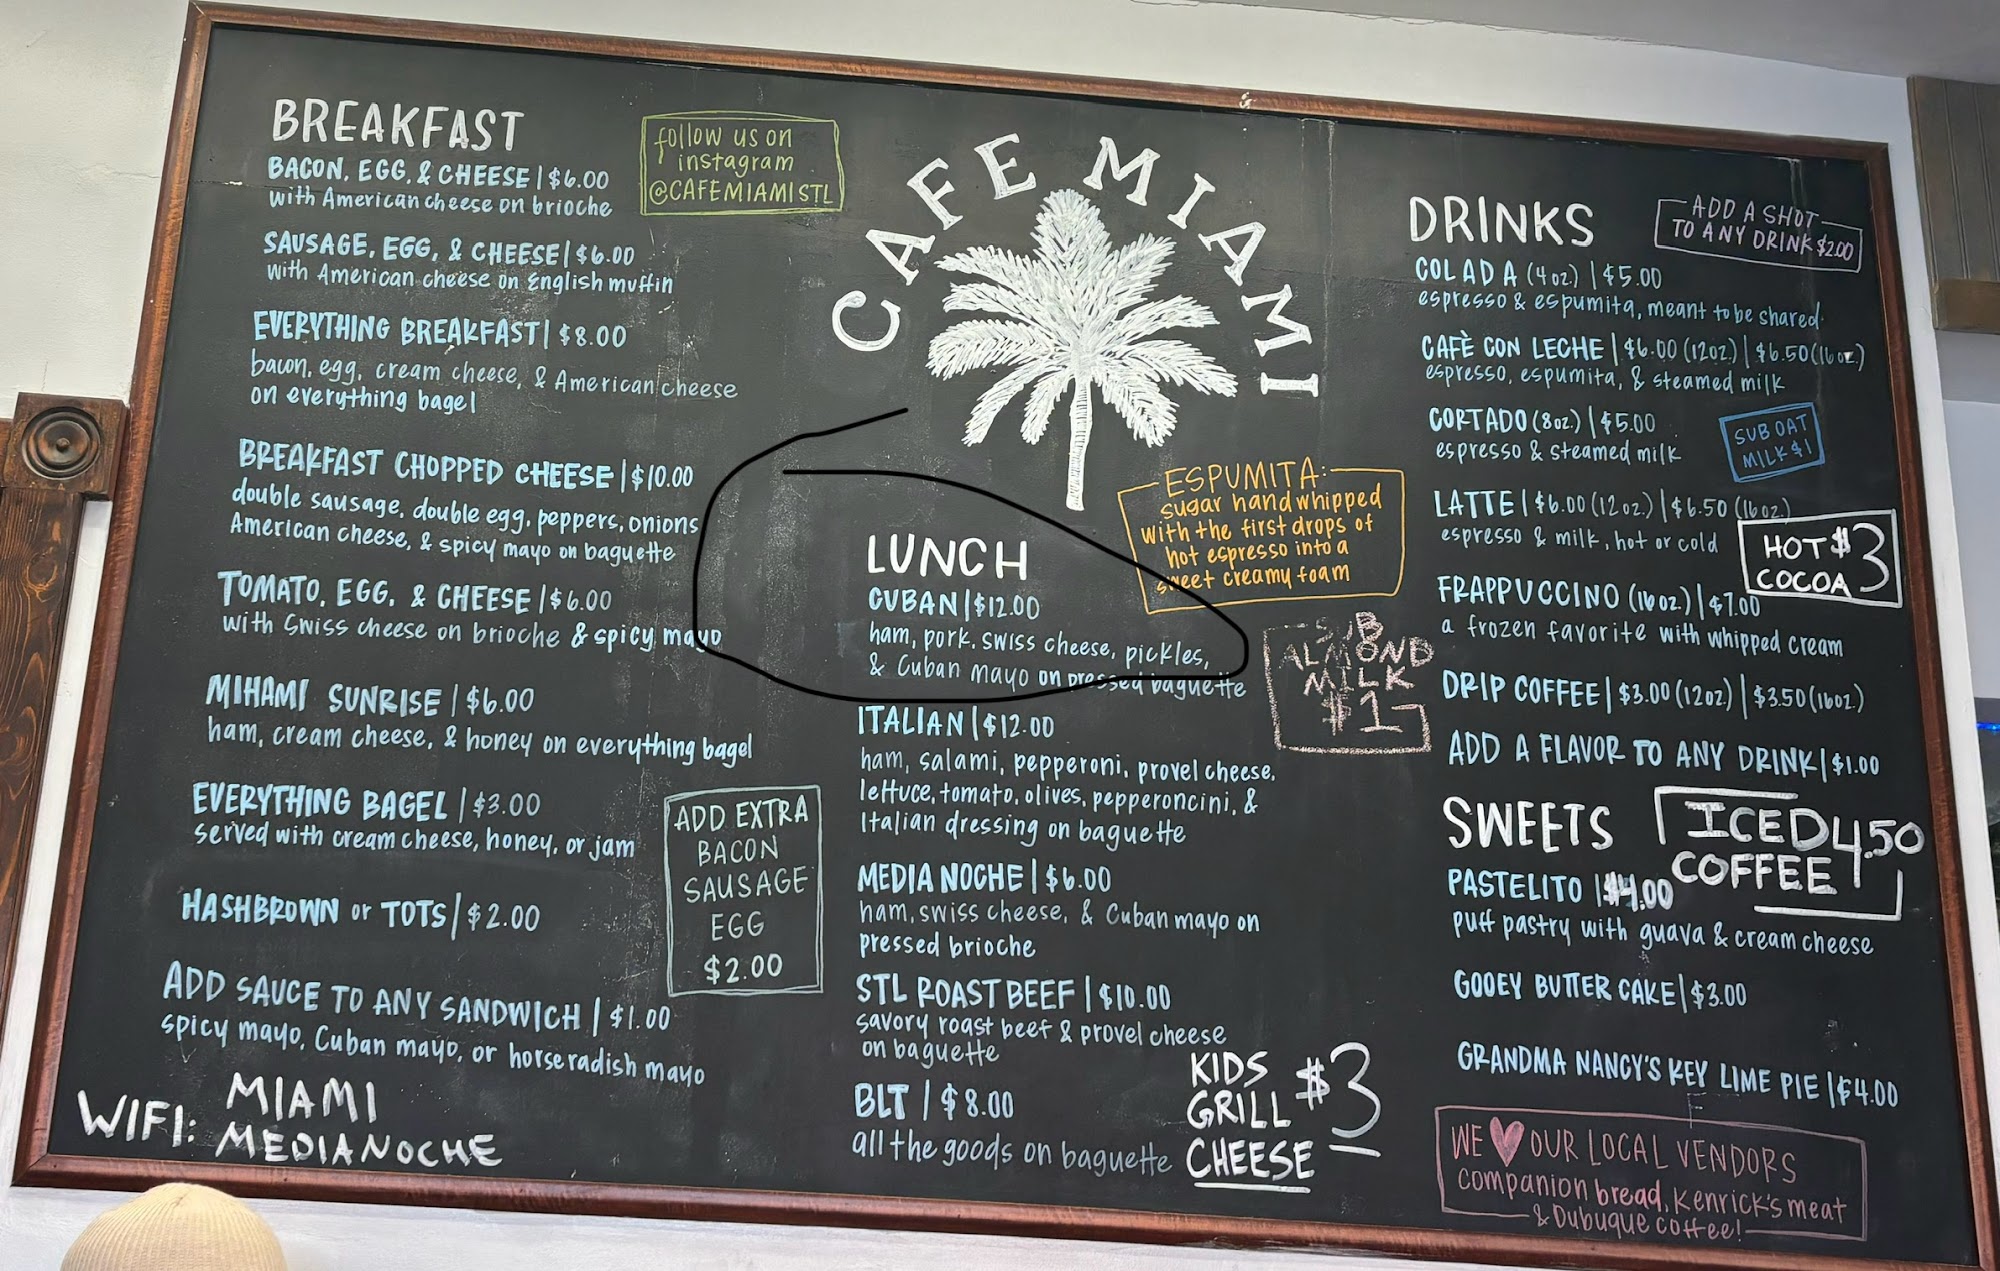 BREAKFAST
BACON, EGG, & CHEESE | $6.00
with American cheese on brioche
SAUSAGE, EGG, & CHEESE | $6.00
with American cheese on English muffin
EVERYTHING BREAKFAST | $8.00
bacon, egg, cream cheese, & American cheese
on everything bagel
BREAKFAST CHOPPED CHEESE | $10.00
double sausage, double egg, peppers, onions
American cheese, & spicy mayo on baguette
TOMATO, EGG, & CHEESE | $6.00
with Swiss cheese on brioche & spicy mayo
MIHAMI SUNRISE | $6.00
ham, cream cheese, & honey on everything bagel
EVERYTHING BAGEL | $3.00
served with cream cheese, honey, or jam
HASHBROWN or TOTS | $2.00
ADD SAUCE TO ANY SANDWICH | $1.00
spicy mayo, Cuban mayo, or horseradish mayo
WIFI: MIAMI
MEDIANOCHE
follow us on
instagram
@CAFEMIAMISTL
ADD EXTRA
BACON
SAUSAGE
EGG
$2.00
CAFE MIAMI
ESPUMITA:
sugar hand whipped
with the first drops of
hot espresso into a
sweet creamy foam
LUNCH
CUBAN | $12.00
ham, pork, swiss cheese, pickles,
& Cuban mayo on pressed baguette
ITALIAN | $12.00
ham, salami, pepperoni, provel cheese,
lettuce, tomato, olives, pepperoncini, &
Italian dressing on baguette
MEDIA NOCHE | $6.00
ham, swiss cheese, & Cuban mayo on
pressed brioche
STL ROAST BEEF | $10.00
savory roast beef & provel cheese
on baguette
BLT | $8.00
all the goods on baguette
KIDS
GRILL
CHEESE
$3
SUB
ALMOND
MILK
$1
DRINKS
ADD A SHOT
TO ANY DRINK $2.00
COLADA (4oz.) | $5.00
espresso & espumita, meant to be shared
CAFÈ CON LECHE | $6.00 (12oz.) | $6.50 (16oz.)
espresso, espumita, & steamed milk
CORTADO (8oz.) | $5.00
espresso & steamed milk
SUB OAT
MILK $1
LATTE | $6.00 (12oz.) | $6.50 (16oz.)
espresso & milk, hot or cold
HOT $3
COCOA
FRAPPUCCINO (16oz.) | $7.00
a frozen favorite with whipped cream
DRIP COFFEE | $3.00 (12oz.) | $3.50 (16oz.)
ADD A FLAVOR TO ANY DRINK | $1.00
SWEETS
ICED 4.50
COFFEE
PASTELITO | $4.00
puff pastry with guava & cream cheese
GOOEY BUTTER CAKE | $3.00
GRANDMA NANCY'S KEY LIME PIE | $4.00
WE ♥ OUR LOCAL VENDORS
companion bread, Kenrick's meat
& Dubuque coffee!